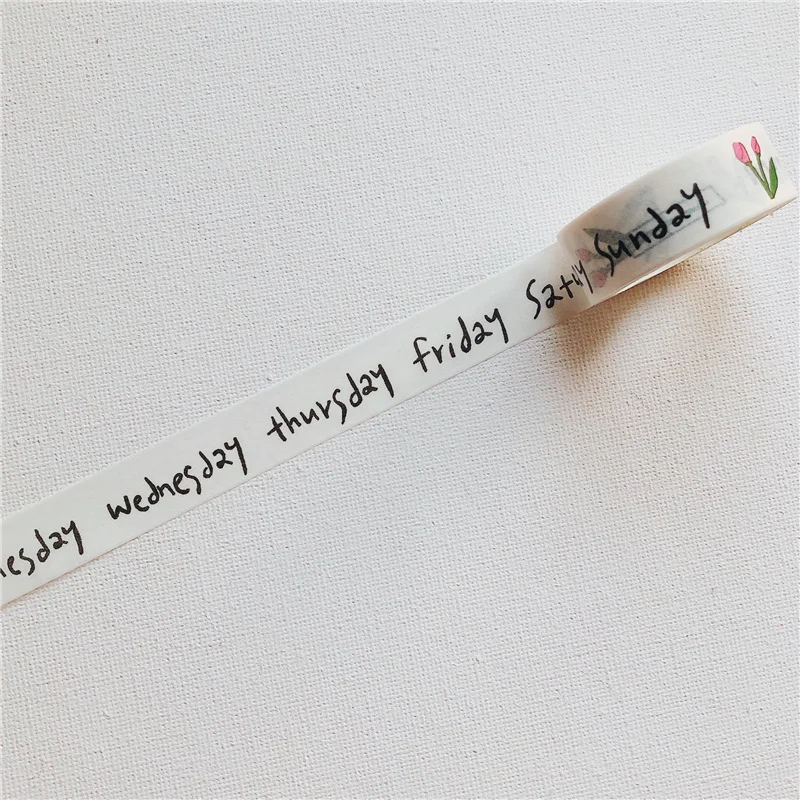 esday wednesday thursday friday Satu sunday